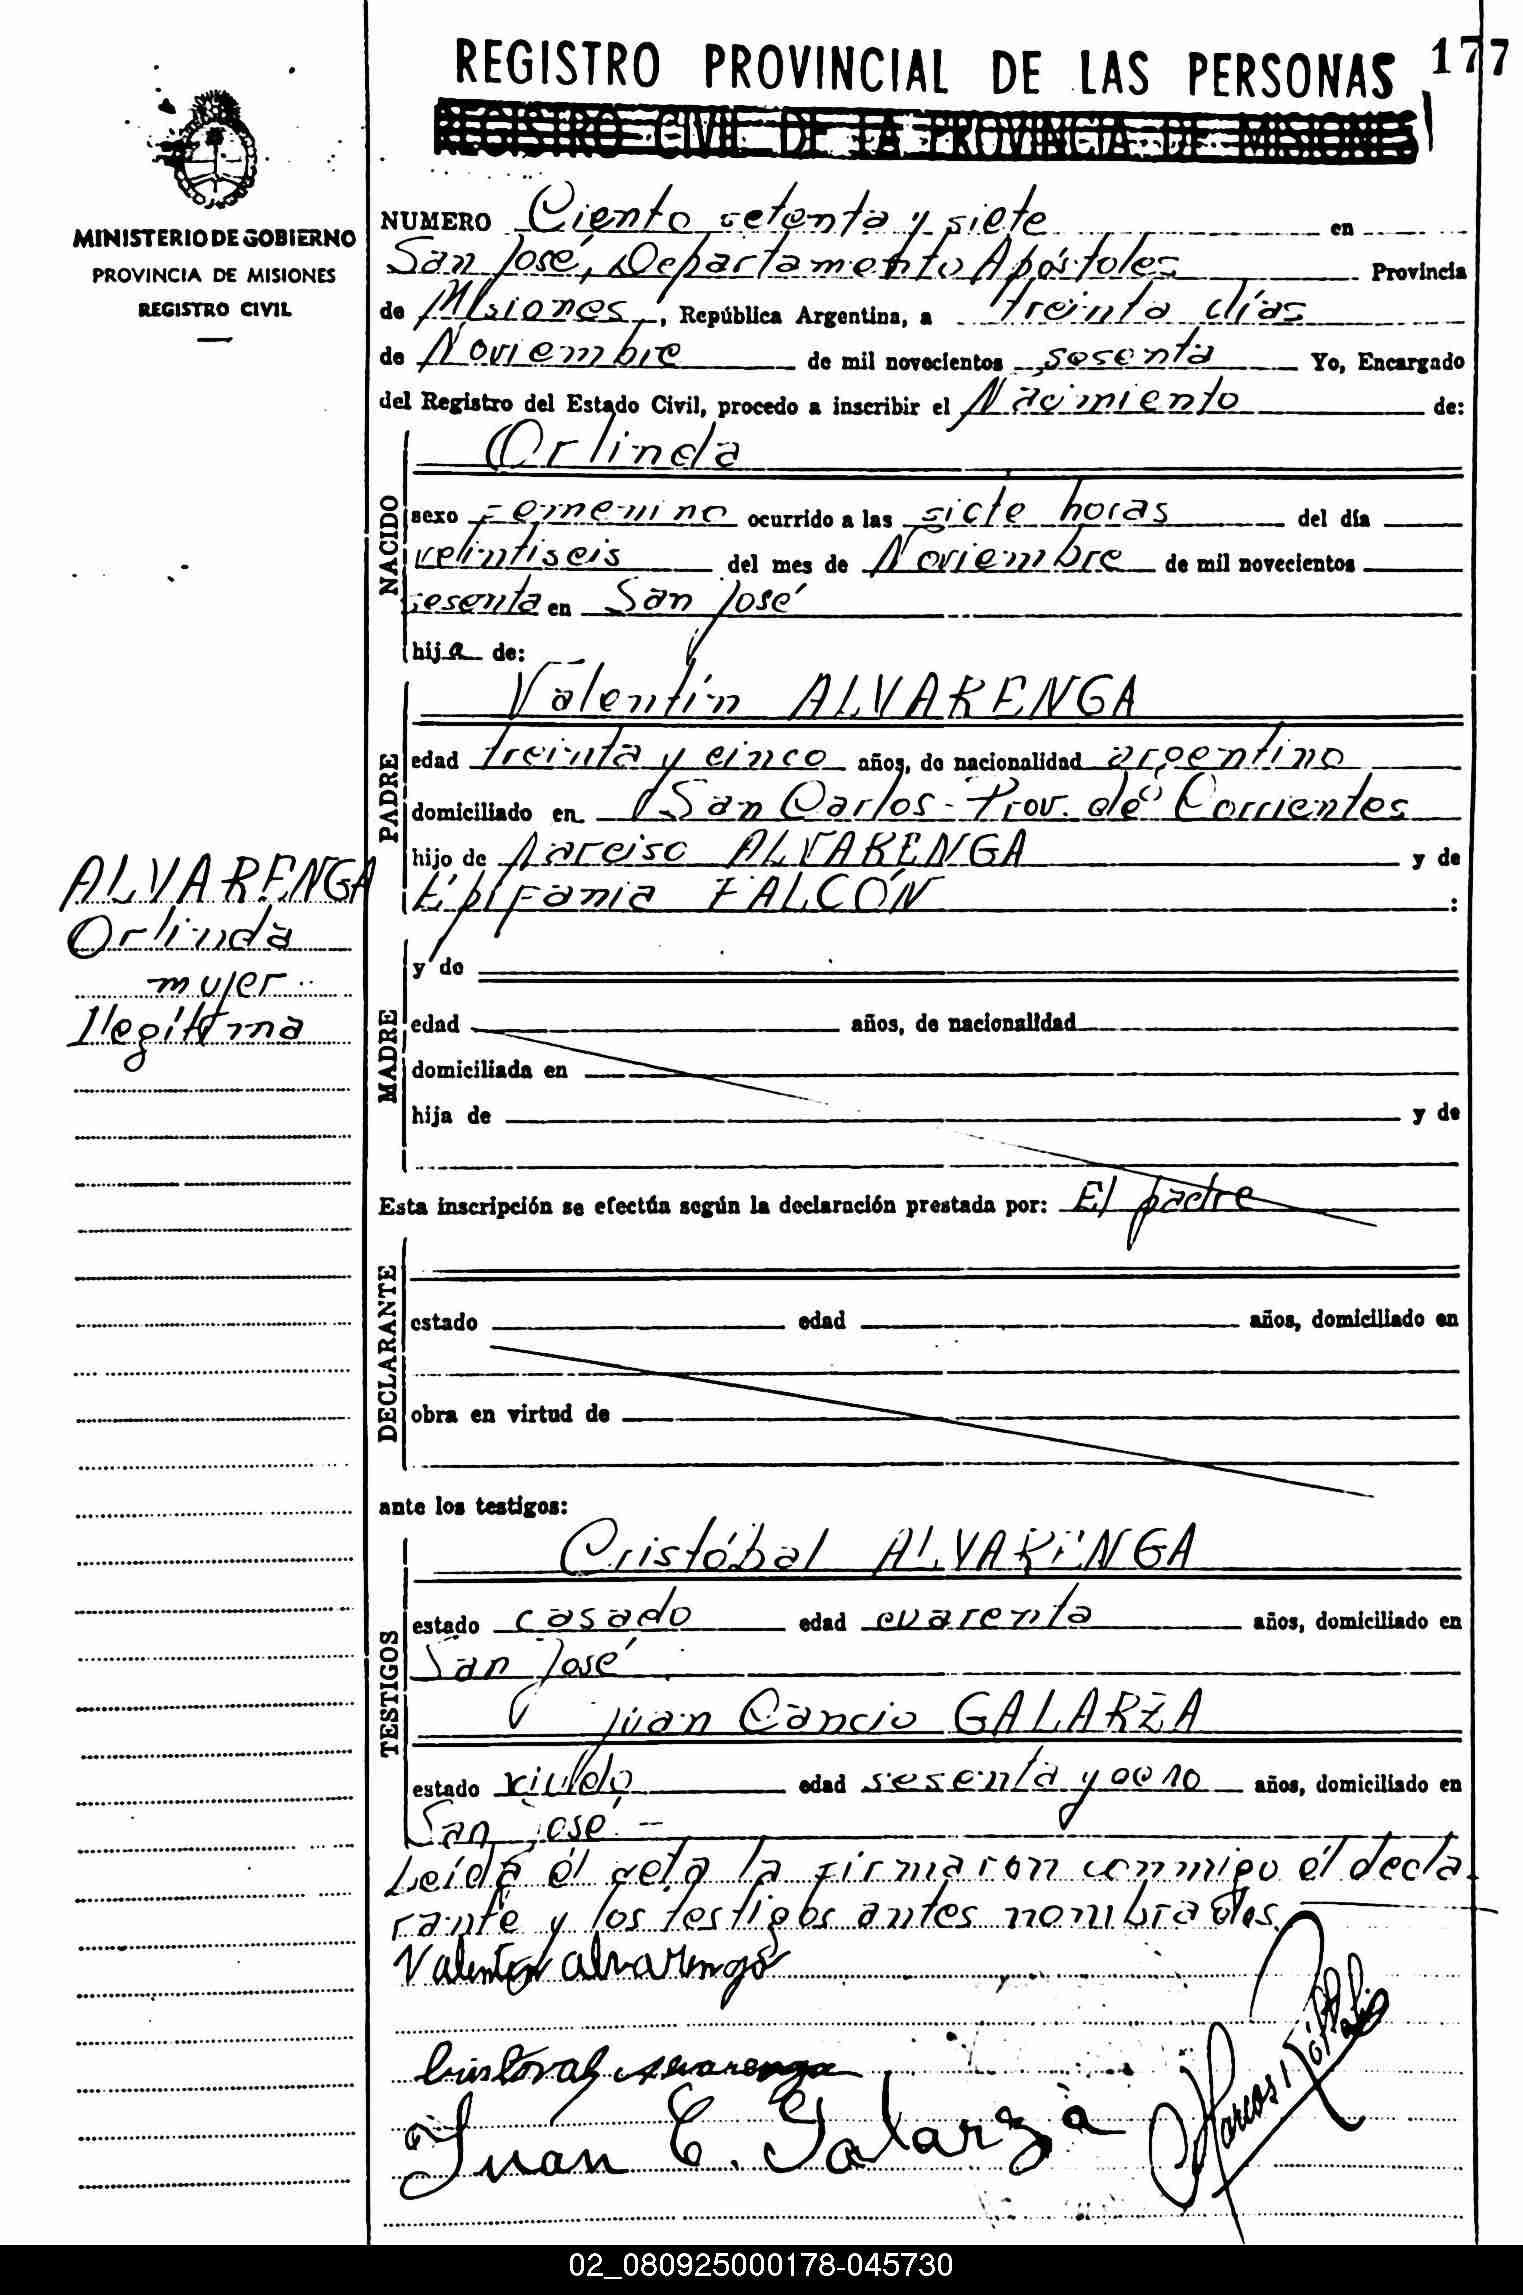 REGISTRO PROVINCIAL DE LAS PERSONAS 177
REGISTRO CIVIL DE LA PROVINCIA DE MISIONES
MINISTERIO DE GOBIERNO
PROVINCIA DE MISIONES
REGISTRO CIVIL
NUMERO Ciento setenta y siete en
San José, Departamento Apóstoles Provincia
de Misiones, República Argentina, a treinta días
de Noviembre de mil novecientos sesenta Yo, Encargado
del Registro del Estado Civil, procedo a inscribir el Nacimiento de:
NACIDO
Orlinda
sexo Femenino ocurrido a las siete horas del día
veintiseis del mes de Noviembre de mil novecientos
sesenta en San José
hija de:
PADRE
Valentín ALVARENGA
edad treinta y cinco años, de nacionalidad argentino
domiciliado en San Carlos - Prov. de Corrientes
hijo de Narciso ALVARENGA y de
Epifania FALCÓN :
ALVARENGA
Orlinda
mujer
Ilegítima
MADRE
y de
edad años, de nacionalidad
domiciliada en
hija de y de
Esta inscripción se efectúa según la declaración prestada por: El padre
DECLARANTE
estado edad años, domiciliado en
obra en virtud de
ante los testigos:
TESTIGOS
Cristóbal ALVARENGA
estado casado edad cuarenta años, domiciliado en
San José
Juan Cancio GALARZA
estado viudo edad sesenta y ocho años, domiciliado en
San José. -
Leída el acta la firmaron conmigo el decla-
rante y los testigos antes nombrados.
Valentin alvarenga
Cristoval Alvarenga
Juan C. Galarza
02_080925000178-045730